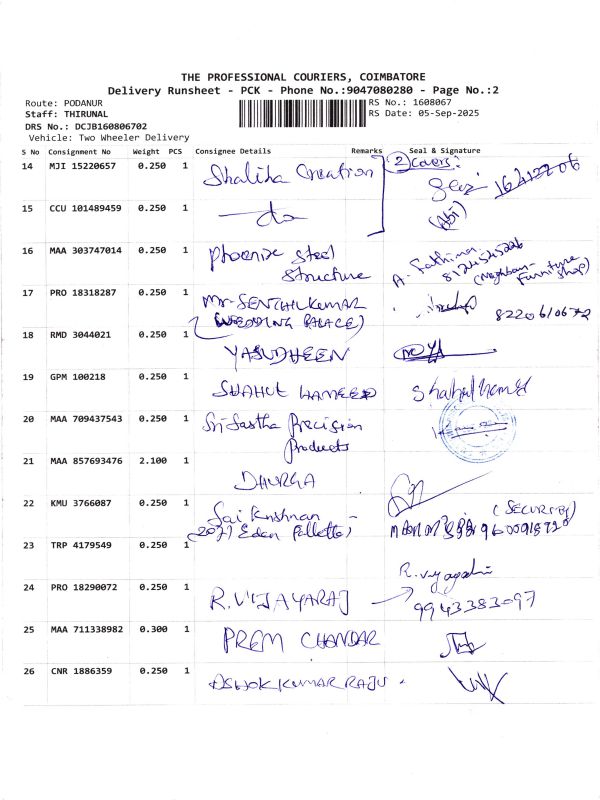 THE PROFESSIONAL COURIERS, COIMBATORE
Delivery Runsheet - PCK - Phone No.:9047080280 - Page No.:2
Route: PODANUR
RS No.: 1608067
Staff: THIRUNAL
RS Date: 05-Sep-2025
DRS No.: DCJB160806702
Vehicle: Two Wheeler Delivery
S No Consignment No Weight PCS Consignee Details Remarks Seal & Signature
14 MJI 15220657 0.250 1 Shaliha Creation 2 Covers:
(Abi)
15 CCU 101489459 0.250 1 do
16 MAA 303747014 0.250 1 Phoenix Steel A. Fathima
Structure 8124545226
(Neighbour Furniture Shop)
17 PRO 18318287 0.250 1 Mr. SENTHILKUMAR
(WEDDING PALACE)
18 RMD 3044021 0.250 1 YASUDHEEN
19 GPM 100218 0.250 1 SHAHUL HAMEED Shahul Hameed
20 MAA 709437543 0.250 1 Sri Sastha Precision
Products
21 MAA 857693476 2.100 1 DHURGA
22 KMU 3766087 0.250 1 Sai Krishnan - (SECURITY)
23 TRP 4179549 0.250 1
24 PRO 18290072 0.250 1 R. VIJAYARAJ
9943383097
25 MAA 711338982 0.300 1 PREM CHANDAR
26 CNR 1886359 0.250 1 ASHOK KUMAR RAJU.